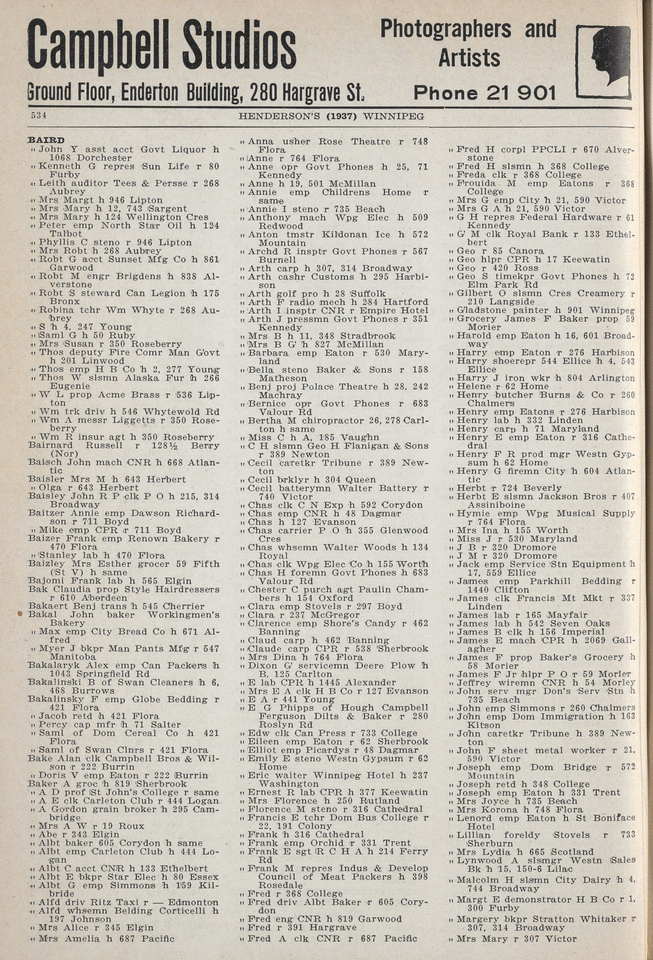 Campbell Studios
Photographers and
Artists
Ground Floor, Enderton Building, 280 Hargrave St.
Phone 21 901
534
HENDERSON'S (1937) WINNIPEG
BAIRD
" John Y asst acct Govt Liquor h
1068 Dorchester
" Kenneth G repres Sun Life r 80
Furby
" Leith auditor Tees & Persse r 268
Aubrey
" Mrs Margt h 946 Lipton
" Mrs Mary h 12, 743 Sargent
" Mrs Mary h 124 Wellington Cres
" Peter emp North Star Oil h 124
Talbot
" Phyllis C steno r 946 Lipton
" Mrs Robt h 268 Aubrey
" Robt G acct Sunset Mfg Co h 861
Garwood
" Robt M engr Brigdens h 838 Al-
verstone
" Robt S steward Can Legion h 175
Bronx
" Robina tchr Wm Whyte r 268 Au-
brey
" S h 4, 247 Young
" Saml G h 50 Ruby
" Mrs Susan r 350 Roseberry
" Thos deputy Fire Comr Man Govt
h 201 Linwood
" Thos emp H B Co h 2, 277 Young
" Thos W slsmn Alaska Fur h 266
Eugenie
" W L prop Acme Brass r 536 Lip-
ton
" Wm trk driv h 546 Whytewold Rd
" Wm A messr Liggetts r 350 Rose-
berry
" Wm R insur agt h 350 Roseberry
Bairnard Russell r 128½ Berry
(Nor)
Baisch John mach CNR h 668 Atlan-
tic
Baisler Mrs M h 643 Herbert
" Olga r 643 Herbert
Baisley John R P clk P O h 215, 314
Broadway
Baitzer Annie emp Dawson Richard-
son r 711 Boyd
" Mike emp CPR r 711 Boyd
Baizer Frank emp Renown Bakery r
470 Flora
" Stanley lab h 470 Flora
Baizley Mrs Esther grocer 59 Fifth
(St V) h same
Bajomi Frank lab h 565 Elgin
Bak Claudia prop Style Hairdressers
r 610 Aberdeen
Bakaert Benj trans h 545 Cherrier
Bakal John baker Workingmen's
Bakery
" Max emp City Bread Co h 671 Al-
fred
" Myer J bkpr Man Pants Mfg r 547
Manitoba
Bakalaryk Alex emp Can Packers h
1043 Springfield Rd
Bakalinski B of Swan Cleaners h 6,
468 Burrows
Bakalinsky F emp Globe Bedding r
421 Flora
" Jacob retd h 421 Flora
" Percy cap mfr h 71 Salter
" Saml of Dom Cereal Co h 421
Flora
" Saml of Swan Clnrs r 421 Flora
Bake Alan clk Campbell Bros & Wil-
son r 222 Burrin
" Doris V emp Eaton r 222 Burrin
Baker A groc h 819 Sherbrook
" A D prof St John's College r same
" A E clk Carleton Club r 444 Logan
" A Gordon grain broker h 295 Cam-
bridge
" Mrs A W r 19 Roux
" Abe r 343 Elgin
" Albt baker 605 Corydon h same
" Albt emp Carleton Club h 444 Lo-
gan
" Albt C acct CNR h 133 Ethelbert
" Albt E bkpr Star Elec h 80 Essex
" Albt G emp Simmons h 159 Kil-
bride
" Alfd driv Ritz Taxi r — Edmonton
" Alfd whsemn Belding Corticelli h
197 Johnson
" Mrs Alice r 345 Elgin
" Mrs Amelia h 687 Pacific
" Anna usher Rose Theatre r 748
Flora
" Anne r 764 Flora
" Anne opr Govt Phones h 25, 71
Kennedy
" Anne h 19, 501 McMillan
" Annie emp Childrens Home r
same
" Annie I steno r 735 Beach
" Anthony mach Wpg Elec h 509
Redwood
" Anton tmstr Kildonan Ice h 572
Mountain
" Archd R insptr Govt Phones r 567
Burnell
" Arth carp h 307, 314 Broadway
" Arth cashr Customs h 295 Harbi-
son
" Arth golf pro h 28 Suffolk
" Arth F radio mech h 284 Hartford
" Arth I insptr CNR r Empire Hotel
" Arth J pressmn Govt Phones r 351
Kennedy
" Mrs B h 11, 348 Stradbrook
" Mrs B G h 827 McMillan
" Barbara emp Eaton r 530 Mary-
land
" Bella steno Baker & Sons r 158
Matheson
" Benj proj Palace Theatre h 28, 242
Machray
" Bernice opr Govt Phones r 683
Valour Rd
" Bertha M chiropractor 26, 278 Carl-
ton h same
" Miss C h A, 185 Vaughn
" C H slsmn Geo H Flanigan & Sons
r 389 Newton
" Cecil caretkr Tribune r 389 New-
ton
" Cecil brklyr h 304 Queen
" Cecil batterymn Walter Battery r
740 Victor
" Chas clk C N Exp h 592 Corydon
" Chas emp CNR h 48 Dagmar
" Chas h 127 Evanson
" Chas carrier P O h 355 Glenwood
Cres
" Chas whsemn Walter Woods h 134
Royal
" Chas clk Wpg Elec Co h 155 Worth
" Chas H foremn Govt Phones h 683
Valour Rd
" Chester C purch agt Paulin Cham-
bers h 154 Oxford
" Clara emp Stovels r 297 Boyd
" Clara r 237 McGregor
" Clarence emp Shore's Candy r 462
Banning
" Claud carp h 462 Banning
" Claude carp CPR r 538 Sherbrook
" Mrs Dina h 764 Flora
" Dixon G servicemn Deere Plow h
B, 125 Carlton
" E lab CPR h 1445 Alexander
" Mrs E A clk H B Co r 127 Evanson
" E A r 441 Young
" E G Phipps of Hough Campbell
Ferguson Dilts & Baker r 280
Roslyn Rd
" Edw clk Can Press r 733 College
" Eileen emp Eaton r 62 Sherbrook
" Elliot emp Picardys r 48 Dagmar
" Emily E steno Westn Gypsum r 62
Home
" Eric waiter Winnipeg Hotel r 237
Washington
" Ernest R lab CPR h 377 Keewatin
" Mrs Florence h 250 Rutland
" Florence M steno r 316 Cathedral
" Francis E tchr Dom Bus College r
22, 191 Colony
" Frank h 316 Cathedral
" Frank emp Orchid r 331 Trent
" Frank E sgt R C H A h 214 Ferry
Rd
" Frank M repres Indus & Develop
Council of Meat Packers h 398
Rosedale
" Fred r 368 College
" Fred driv Albt Baker r 605 Cory-
don
" Fred eng CNR h 819 Garwood
" Fred r 391 Hargrave
" Fred A clk CNR r 687 Pacific
" Fred H corpl PPCLI r 670 Alver-
stone
" Fred H slsmn h 368 College
" Freda clk r 368 College
" Frouida M emp Eatons r 368
College
" Mrs G emp City h 21, 590 Victor
" Mrs G A h 21, 590 Victor
" G H repres Federal Hardware r 61
Kennedy
" G M clk Royal Bank r 133 Ethel-
bert
" Geo r 85 Canora
" Geo hlpr CPR h 17 Keewatin
" Geo r 420 Ross
" Geo S timekpr Govt Phones h 72
Elm Park Rd
" Gilbert O slsmn Cres Creamery r
210 Langside
" Gladstone painter h 901 Winnipeg
" Grocery James F Baker prop 59
Morier
" Harold emp Eaton h 16, 601 Broad-
way
" Harry emp Eaton r 276 Harbison
" Harry shoerepr 544 Ellice h 4, 543
Ellice
" Harry J iron wkr h 804 Arlington
" Helene r 62 Home
" Henry butcher Burns & Co r 260
Chalmers
" Henry emp Eatons r 276 Harbison
" Henry lab h 332 Linden
" Henry carp h 71 Maryland
" Henry E emp Eaton r 316 Cathe-
dral
" Henry F R prod mgr Westn Gyp-
sum h 62 Home
" Henry G firemn City h 604 Atlan-
tic
" Herbt r 724 Beverly
" Herbt E slsmn Jackson Bros r 407
Assiniboine
" Hymie emp Wpg Musical Supply
r 764 Flora
" Mrs Ina h 155 Worth
" Miss J r 530 Maryland
" J B r 320 Dromore
" J M r 320 Dromore
" Jack emp Service Stn Equipment h
17, 559 Ellice
" James emp Parkhill Bedding r
1440 Clifton
" James clk Francis Mt Mkt r 337
Linden
" James lab r 165 Mayfair
" James lab h 542 Seven Oaks
" James B clk h 156 Imperial
" James E mach CPR h 2069 Gall-
agher
" James F prop Baker's Grocery h
58 Morier
" James F Jr hlpr P O r 59 Morier
" Jeffrey wiremn CNR h 54 Morley
" John serv mgr Don's Serv Stn h
735 Beach
" John emp Simmons r 260 Chalmers
" John emp Dom Immigration h 163
Kitson
" John caretkr Tribune h 389 New-
ton
" John F sheet metal worker r 21,
590 Victor
" Joseph emp Dom Bridge r 572
Mountain
" Joseph retd h 348 College
" Joseph emp Eaton h 331 Trent
" Mrs Joyce h 735 Beach
" Mrs Korona h 748 Flora
" Lenord emp Eaton h St Boniface
Hotel
" Lillian foreldy Stovels r 733
Sherburn
" Mrs Lydia h 665 Scotland
" Lynwood A slsmgr Westn Sales
Bk h 15, 150-6 Lilac
" Malcolm H slsmn City Dairy h 4,
744 Broadway
" Margt E demonstrator H B Co r 1,
300 Furby
" Margery bkpr Stratton Whitaker r
307, 314 Broadway
" Mrs Mary r 307 Victor